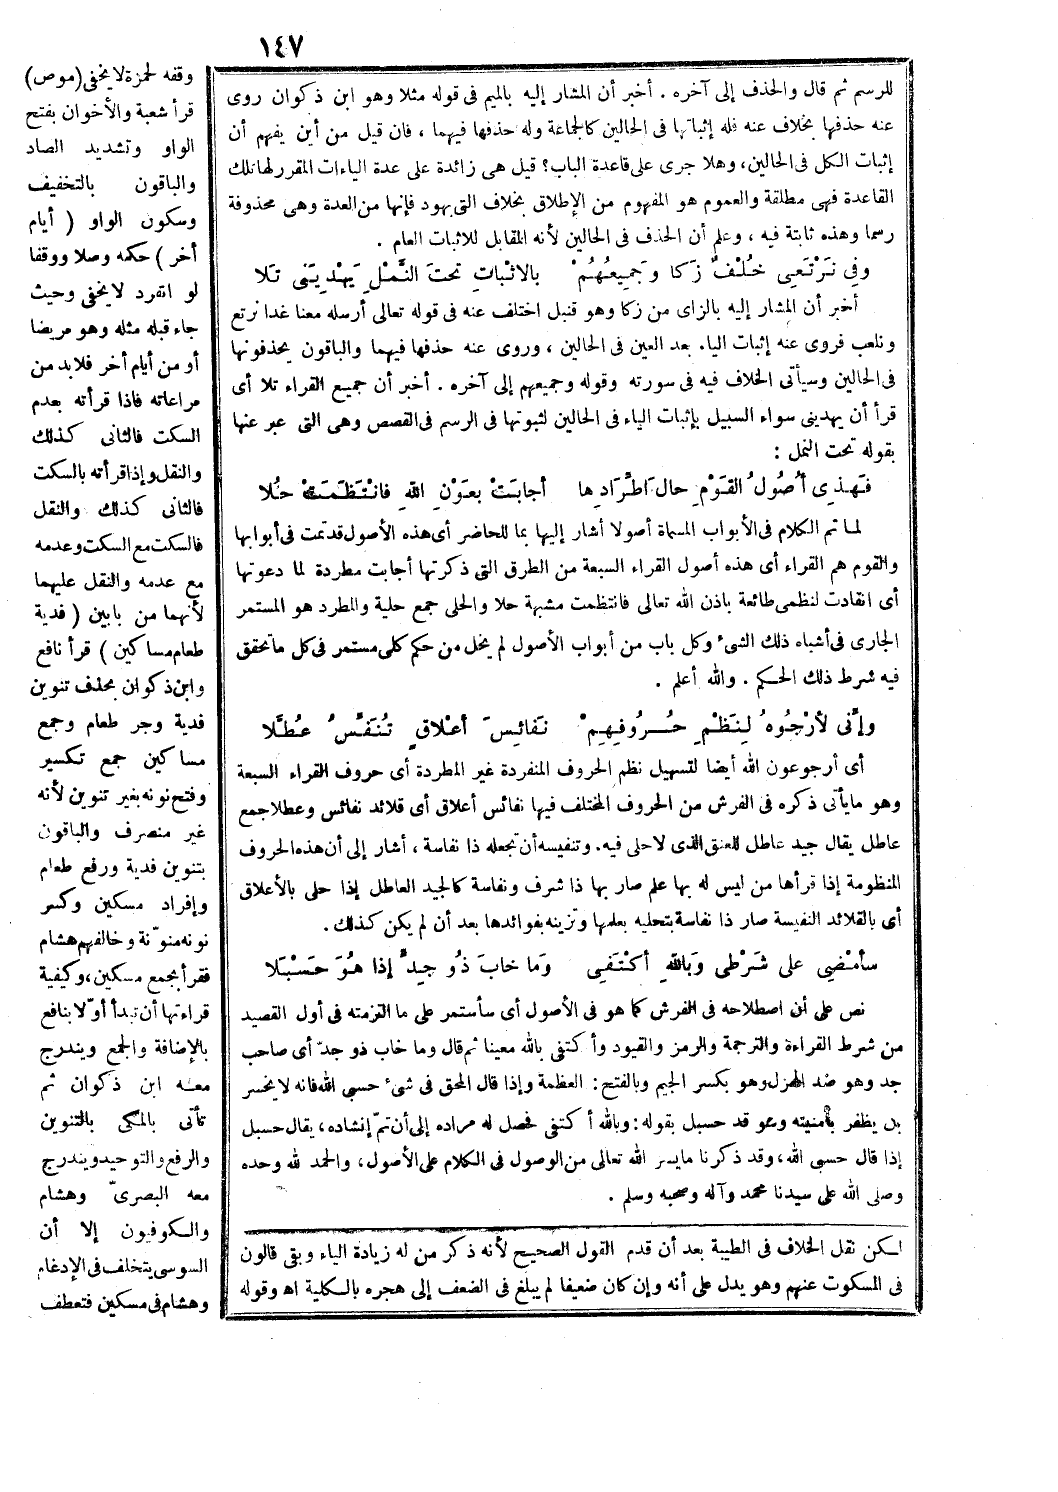 ١٤٧
للرسم ثم قال والحذف إلى آخره . أخبر أن المشار إليه بالميم فى قوله مثلا وهو ابن ذكوان روى
عنه حذفها بخلاف عنه فله إثباتها فى الحالين كالجماعة وله حذفها فيهما ، فان قيل من أين يفهم أن
إثبات الكل فى الحالين، وهلا جرى على قاعدة الباب؟ قيل هى زائدة على عدة الياءات المقرر لها تلك
القاعدة فهى مطلقة والعموم هو المفهوم من الإطلاق بخلاف التى بهود فإنها من العدة وهى محذوفة
رسما وهذه ثابتة فيه ، وعلم أن الحذف فى الحالين لأنه المقابل للاثبات العام .
وفِى نَرْتَعِى خُلْفٌ زَكا وَجَمِيعُهُمْ بالاثْباتِ تحتَ النَّمْلِ يَهْدِيَنِى تَلَا
أخبر أن المشار إليه بالزاى من زكا وهو قنبل اختلف عنه فى قوله تعالى أرسله معنا غدا نرتع
ونلعب فروى عنه إثبات الياء بعد العين فى الحالين ، وروى عنه حذفها فيهما والباقون يحذفونها
فى الحالين وسيأتى الخلاف فيه فى سورته وقوله وجميعهم إلى آخره . أخبر أن جميع القراء تلا أى
قرأ أن يهدينى سواء السبيل بإثبات الياء فى الحالين لثبوتها فى الرسم فى القصص وهى التى عبر عنها
بقوله تحت النمل :
فَهذِى أُصُولُ القَوْمِ حالَ اطِّرَادِها أجابَتْ بعَوْنِ اللهِ فانْتَظَمَتْ حُلا
لما تم الكلام فى الأبواب المسماة أصولا أشار إليها بما للحاضر أى هذه الأصول قد تمت فى أبوابها
والقوم هم القراء أى هذه أصول القراء السبعة من الطرق التى ذكرتها أجابت مطردة لما دعوتها
أى انقادت لنظمى طائعة باذن الله تعالى فانتظمت مشبهة حلا والحلى جمع حلية والمطرد هو المستمر
الجارى فى أشباه ذلك الشىء وكل باب من أبواب الأصول لم يخل من حكم كلى مستمر فى كل ماتحقق
فيه شرط ذلك الحكم . والله أعلم .
وإنِّى لأَرْجُوهُ لِنَظْمِ حُرُوفِهِمْ نَفائِسَ أعْلاقٍ تُنَفِّسُ عُطَّلا
أى أرجو عون الله أيضا لتسهيل نظم الحروف المنفردة غير المطردة أى حروف القراء السبعة
وهو مايأتى ذكره فى الفرش من الحروف المختلف فيها نفائس أعلاق أى قلائد نفائس وعطلا جمع
عاطل يقال جيد عاطل للعنق الذى لاحلى فيه. وتنفيسه أن تجعله ذا نفاسة ، أشار إلى أن هذه الحروف
المنظومة إذا قرأها من ليس له بها علم صار بها ذا شرف ونفاسة كالجيد العاطل إذا حلى بالأعلاق
أى بالقلائد النفيسة صار ذا نفاسة بتحليه بعلمها وتزينه بفوائدها بعد أن لم يكن كذلك.
سأمْضِى على شَرْطِى وَباللهِ أكْتَفِى وَما خابَ ذُو جِدٍّ إذا هُوَ حَسْبَلا
نص على أن اصطلاحه فى الفرش كما هو فى الأصول أى سأستمر على ما التزمته فى أول القصيد
من شرط القراءة والترجمة والرمز والقيود وأكتفى بالله معينا ثم قال وما خاب ذو جدّ أى صاحب
جد وهو ضد الهزل وهو بكسر الجيم وبالفتح : العظمة وإذا قال المحق فى شىء حسبى الله فانه لايخسر
بل يظفر بأمنيته وهو قد حسبل بقوله : وبالله أكتفى فحصل له مراده إلى أن تمّ إنشاده ، يقال حسبل
إذا قال حسبى الله ، وقد ذكرنا مايسر الله تعالى من الوصول فى الكلام على الأصول، والحمد لله وحده
وصلى الله على سيدنا محمد وآله وصحبه وسلم .
لكن نقل الخلاف فى الطيبة بعد أن قدم القول الصحيح لأنه ذكر من له زيادة الياء وبقى قالون
فى المسكوت عنهم وهو يدل على أنه وإن كان ضعيفا لم يبلغ فى الضعف إلى هجره بالكلية اه وقوله
وقفه لحمزة لايخفى (موص)
قرأ شعبة والأخوان بفتح
الواو وتشديد الصاد
والباقون بالتخفيف
وسكون الواو ( أيام
أخر ) حكمه وصلا ووقفا
لو انفرد لايخفى وحيث
جاء قبله مثله وهو مريضا
أو من أيام أخر فلابد من
مراعاته فاذا قرأته بعدم
السكت فالثانى كذلك
والنقل وإذا قرأته بالسكت
فالثانى كذلك والنقل
فالسكت مع السكت وعدمه
مع عدمه والنقل عليهما
لأنهما من بابين ( فدية
طعام مساكين ) قرأ نافع
وابن ذكوان بحذف تنوين
فدية وجر طعام وجمع
مساكين جمع تكسير
وفتح نونه بغير تنوين لأنه
غير منصرف والباقون
بتنوين فدية ورفع طعام
وإفراد مسكين وكسر
نونه منوّنة وخالفهم هشام
فقرأ بجمع مسكين، وكيفية
قراءتها أن تبدأ أوّلا بنافع
بالإضافة والجمع ويندرج
معه ابن ذكوان ثم
تأتى بالمكى بالتنوين
والرفع والتوحيد ويندرج
معه البصرىّ وهشام
والكوفيون إلا أن
السوسى يتخلف فى الإدغام
وهشام فى مسكين فتعطف